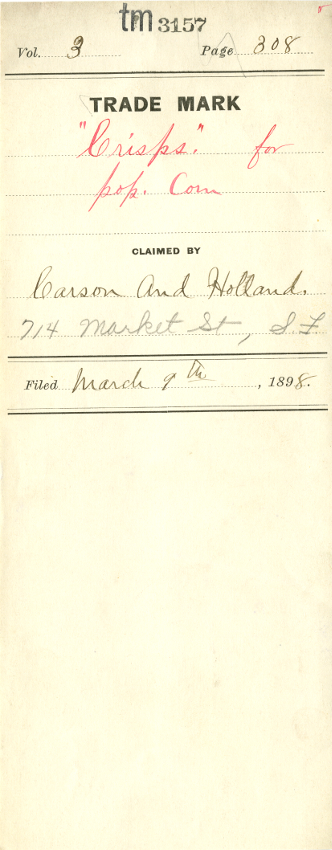 tm 3157
Vol. 3 Page 308
TRADE MARK
"Crisps." for
pop. Corn
CLAIMED BY
Carson And Holland.
714 Market St, S F
Filed March 9th, 1898.